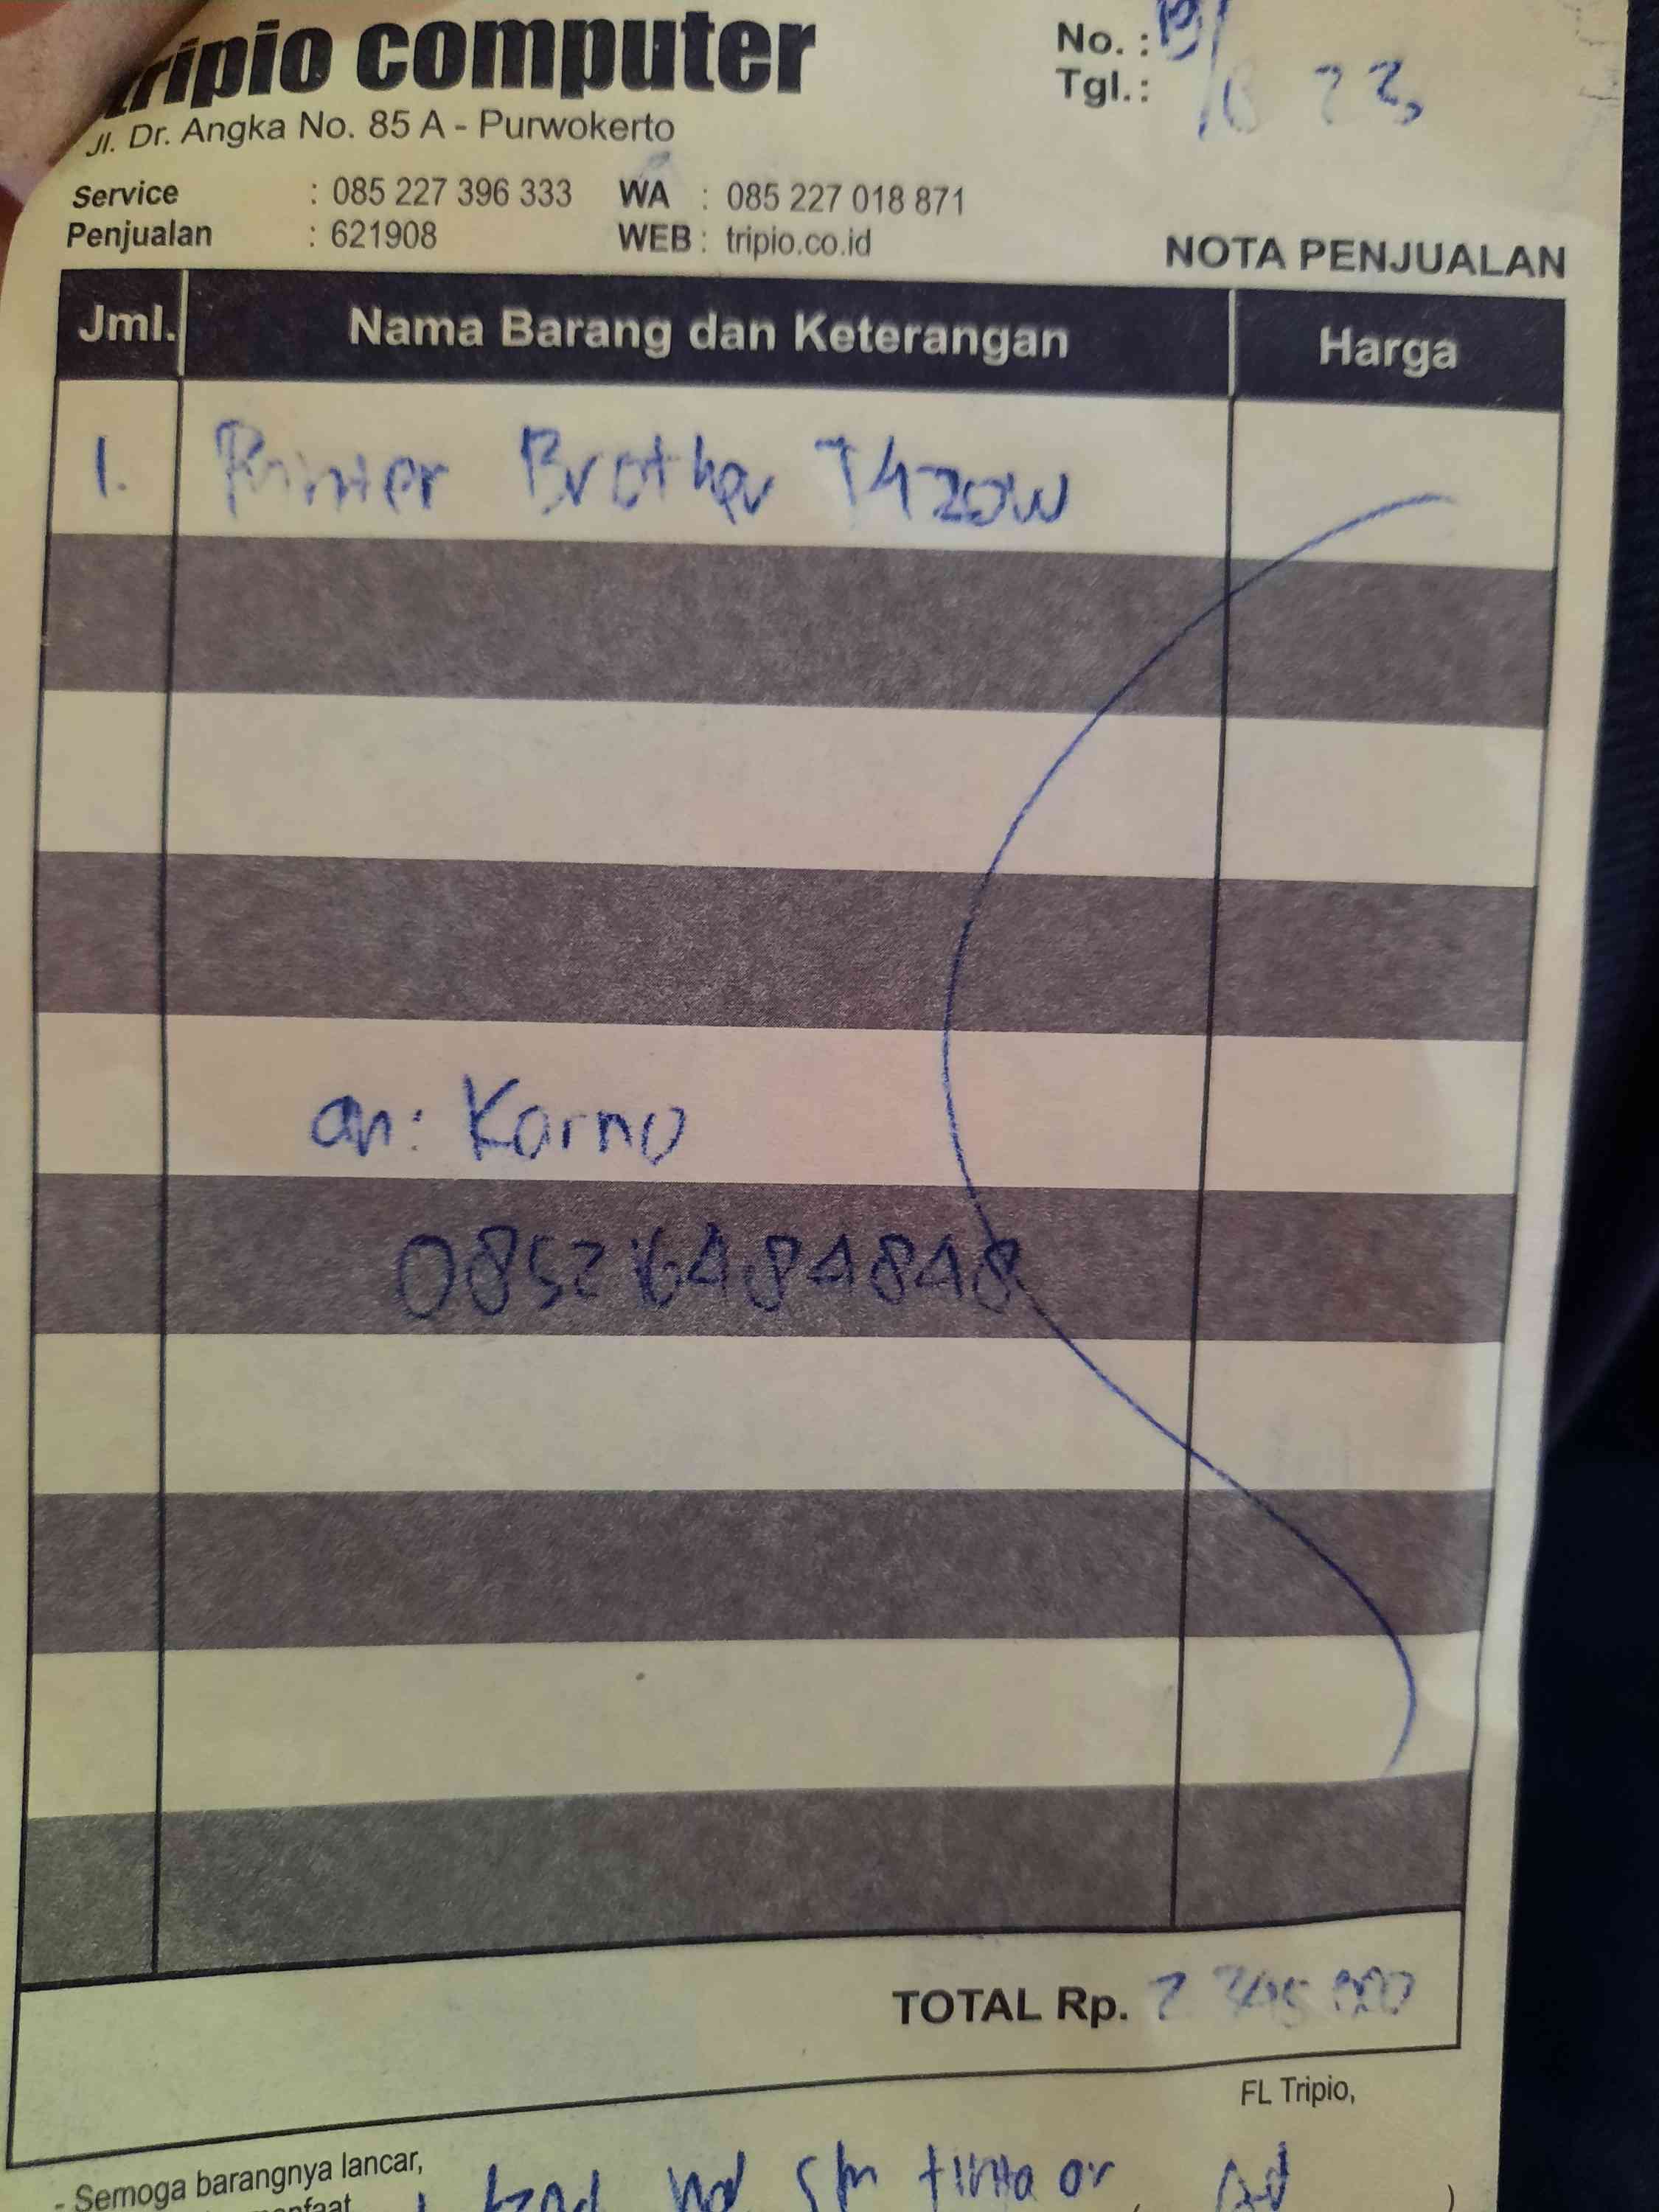 tripio computer
No. :
Tgl.:
Jl. Dr. Angka No. 85 A - Purwokerto
Service : 085 227 396 333 WA : 085 227 018 871
Penjualan : 621908 WEB : tripio.co.id
NOTA PENJUALAN
Jml. Nama Barang dan Keterangan Harga
1. Printer Brother T420W
an: Karno
085216484848
TOTAL Rp. 2 345 000
FL Tripio,
- Semoga barangnya lancar,
tinta or